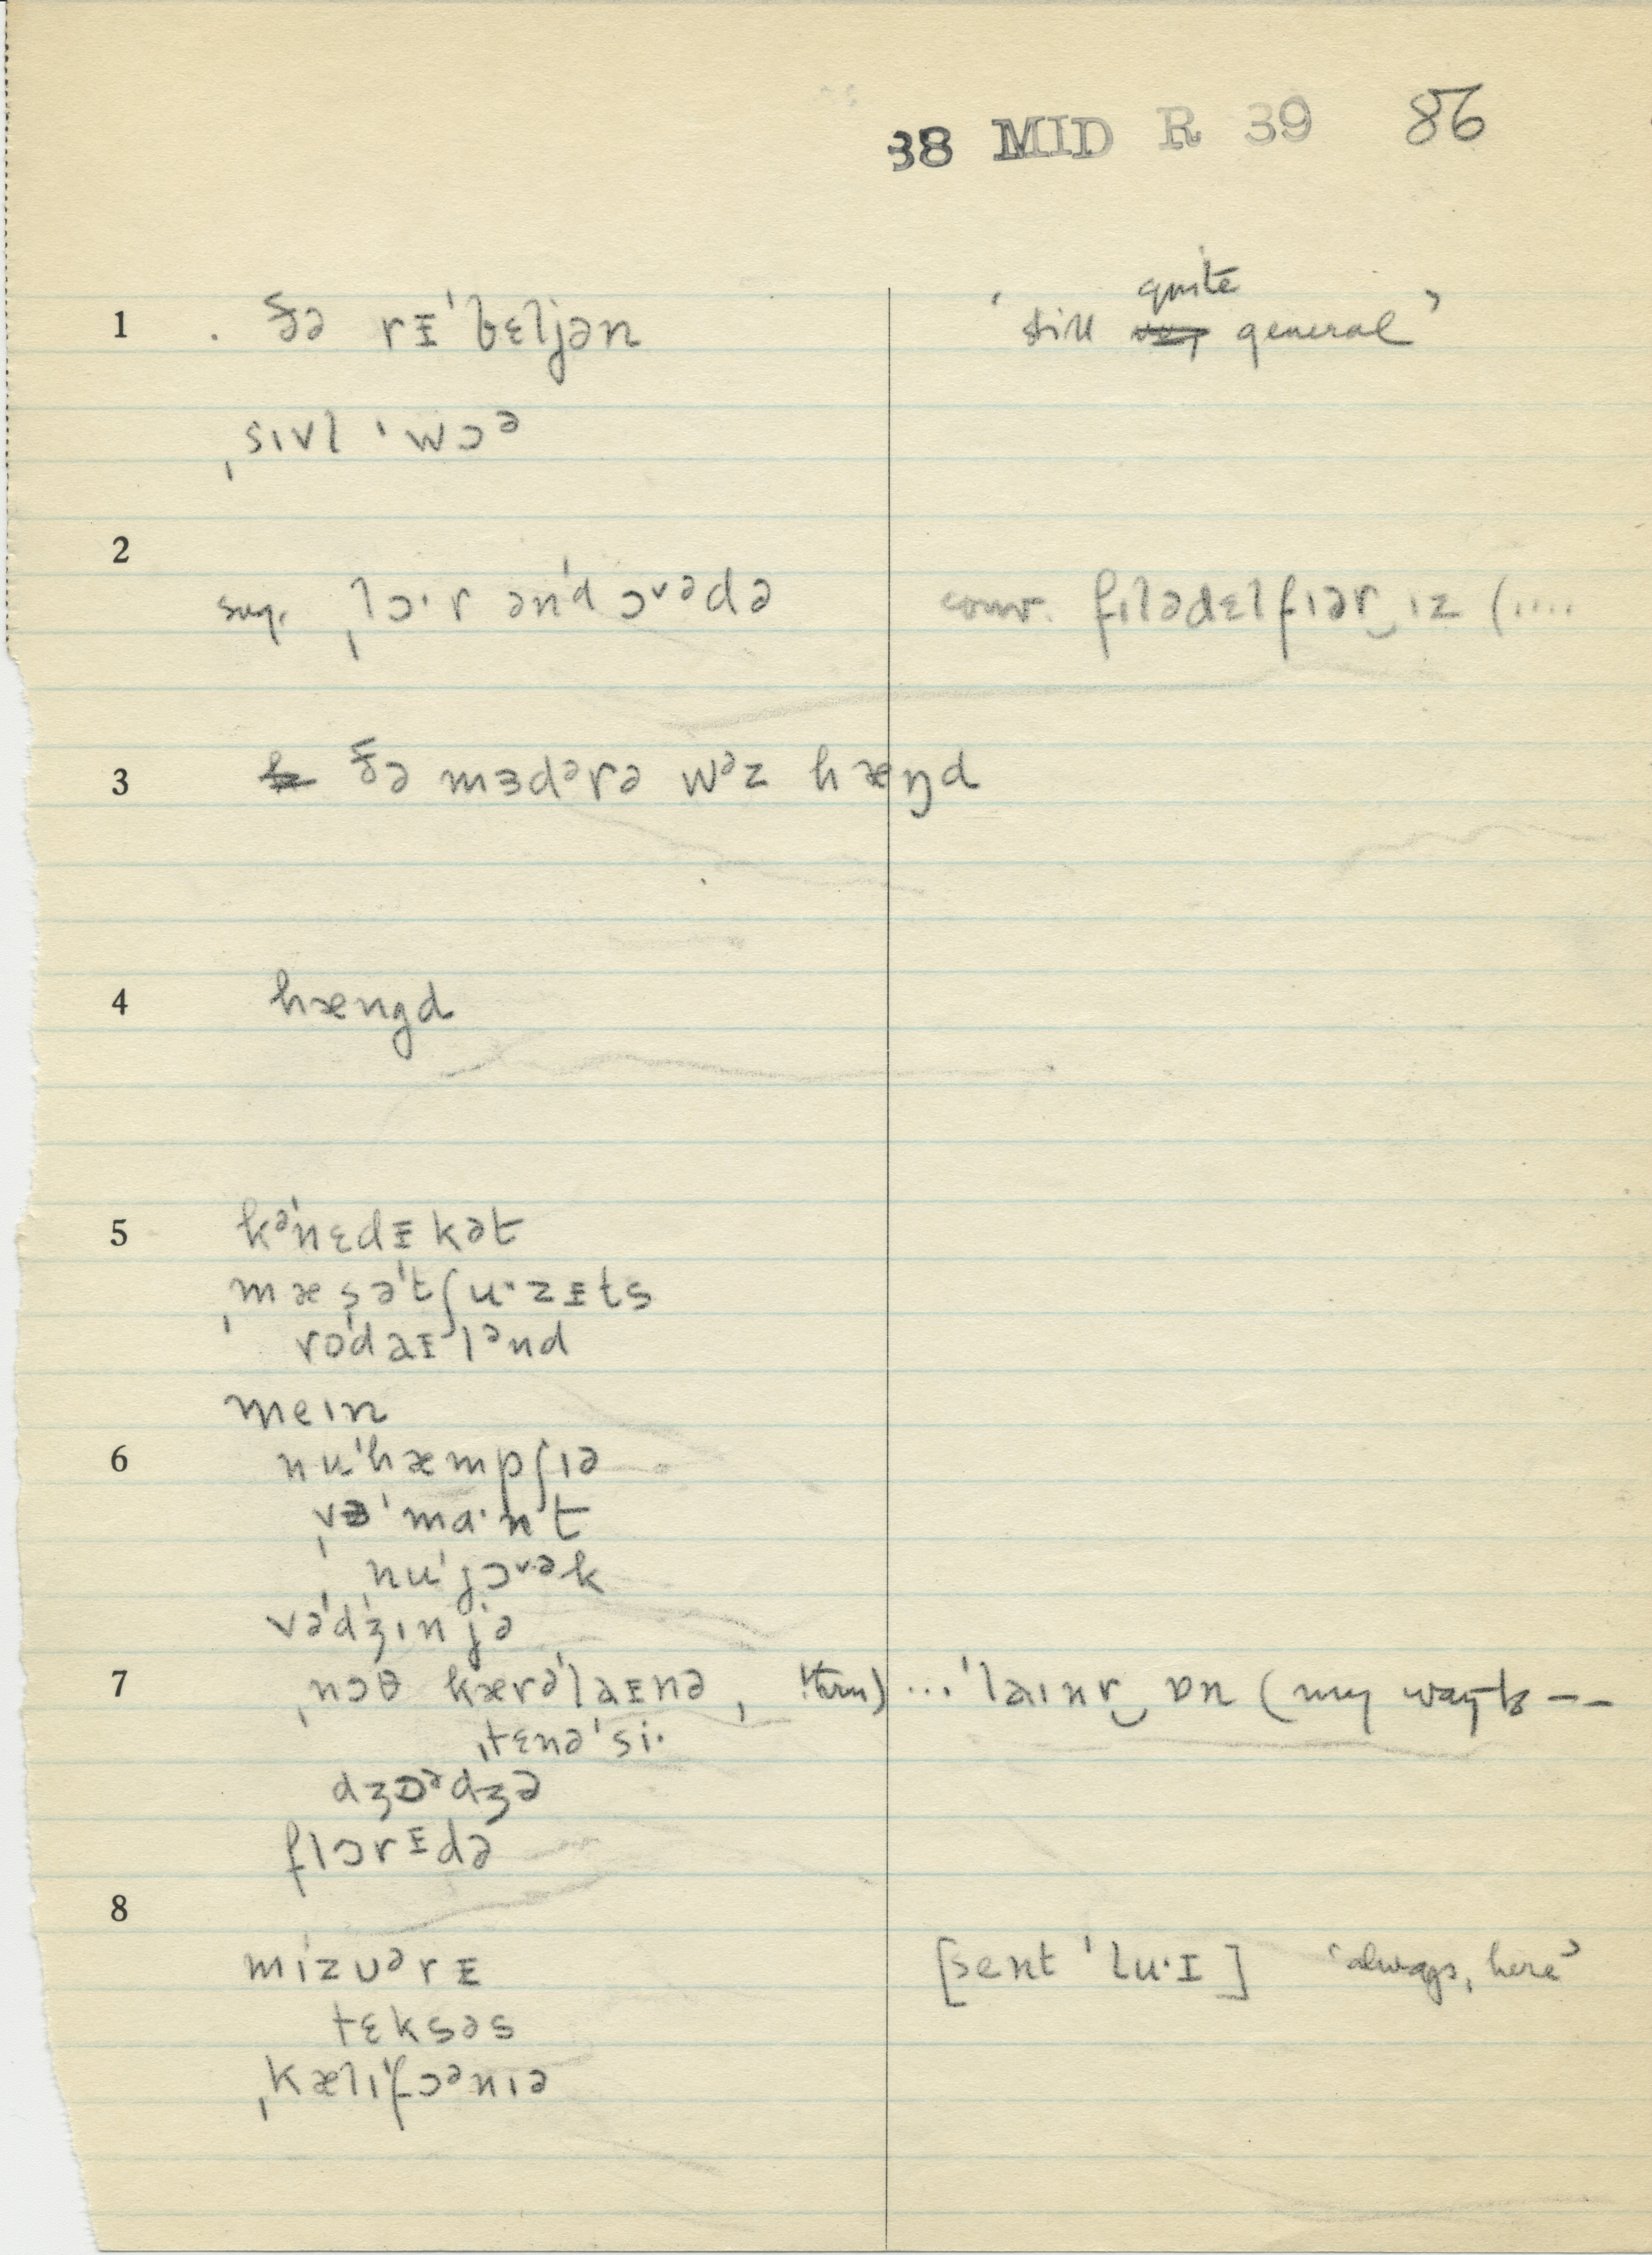 38 MID R 39 86
1 . ðə rᵻˈbɛljən ‘still quite general’
ˌsɪvl ˈwɔᵊ
2
sug. ˌlɔ·r ənˈd ɔᵛᵊdə conv. fɪlədɛlfɪər‿ɪz (....
3 ðə mɜdᵊrə wᵊz hæŋd
4 hængd
5 kᵊˈnɛdᵻkət
ˌmæsəˈtʃu·zᵻts
roˈdaᵻlᵊnd
meɪn
6 nuˈhæmpʃɪə
ˌvɜˈma·nt
ˌnuˈjɔᵛ·ᵊk
vəˈdʒɪnjə
7 ˌnɔθ kærəˈlaᵻnə, ...ˈlaɪnr‿ɒn (my way to --
ˌtɛnəˈsi·
dʒɔᵊdʒə
flɔrᵻdə
8
mɪˈzuᵊrᵻ [sent ˈlu·ɪ] ‘always, here’
tɛksəs
ˌkælɪˈfɔᵊnɪə